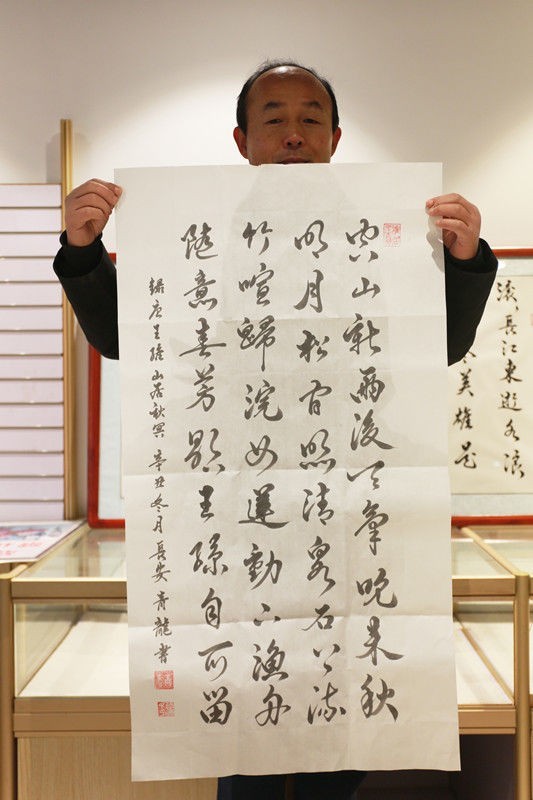 空山新雨後天氣晚来秋
明月松间照清泉石上流
竹喧歸浣女蓮動下漁舟
隨意春芳歇王孫自可留
錄唐王維山居秋冥 辛丑冬月長安青龍書
滚滚長江東逝水浪
英雄是